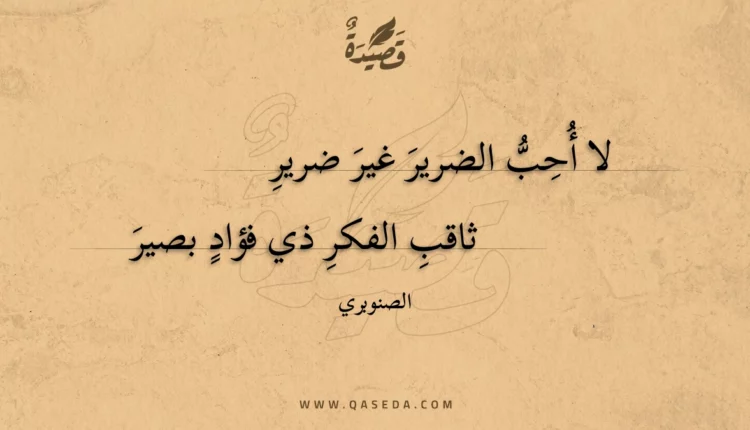 قَصِيْدَةٌ
لا أُحِبُّ الضريرَ غيرَ ضريرِ
ثاقبِ الفكرِ ذي فؤادٍ بصيرَ
الصنوبري
WWW.QASEDA.COM